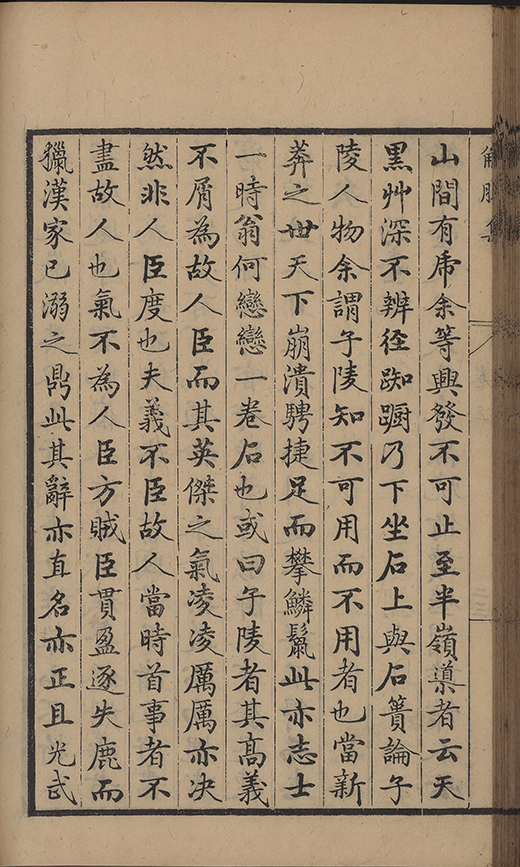 解脫集
山間有虎余等興發不可止至半嶺導者云天
黑艸深不辨徑踟躕乃下坐石上與石簣論子
陵人物余謂子陵知不可用而不用者也當新
莽之世天下崩潰騁捷足而攀鱗鬣此亦志士
一時翁何戀戀一卷石也或曰子陵者其高義
不屑為故人臣而其英傑之氣凌凌厲厲亦决
然非人臣度也夫義不臣故人當時首事者不
盡故人也氣不為人臣方賊臣貫盈逐失鹿而
獵漢家已溺之鼎此其辭亦直名亦正且光武